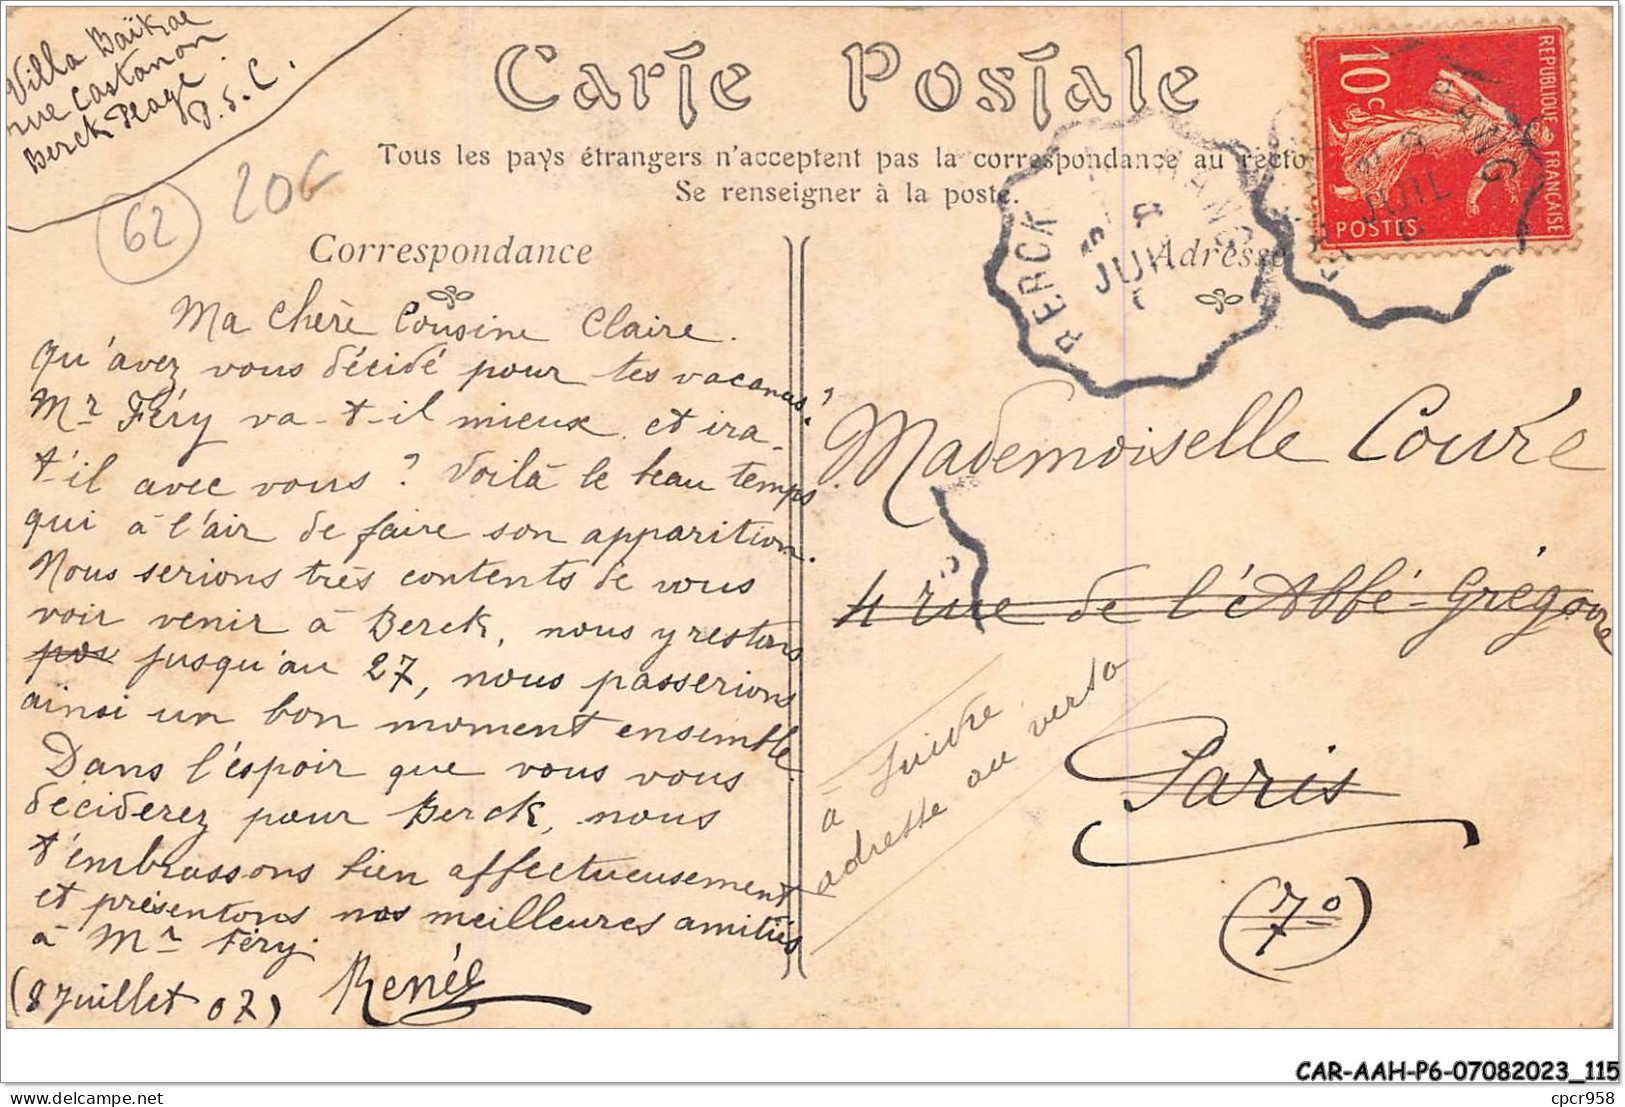 Villa Baïkal
rue Castanon
Berck Plage.
P. d. C.
62
20€
Carte Postale
Tous les pays étrangers n'acceptent pas la correspondance au recto
Se renseigner à la poste.
REPUBLIQUE FRANÇAISE
10c
POSTES
BERCK
JUIL
JUIL
RANG
Correspondance
Ma chère Cousine Claire.
Qu'avez vous décidé pour tes vacances?
Mr Féry va-t-il mieux et ira-
t'il avec vous? Voilà le beau temps
qui à l'air de faire son apparition.
Nous serions très contents de vous
voir venir à Berck, nous y restons
pas jusqu'au 27, nous passerions
ainsi un bon moment ensemble.
Dans l'éspoir que vous vous
déciderez pour Berck, nous
t'embrassons bien affectueusement
et présentons nos meilleures amitiés
à Mr Féry.
(8 Juillet 07) Renée
Adresse
Mademoiselle Couré
4 rue de l'Abbé-Grégoire
Paris
(7°)
à suivre
adresse au verso
CAR-AAH-P6-07082023_115
cpcr958